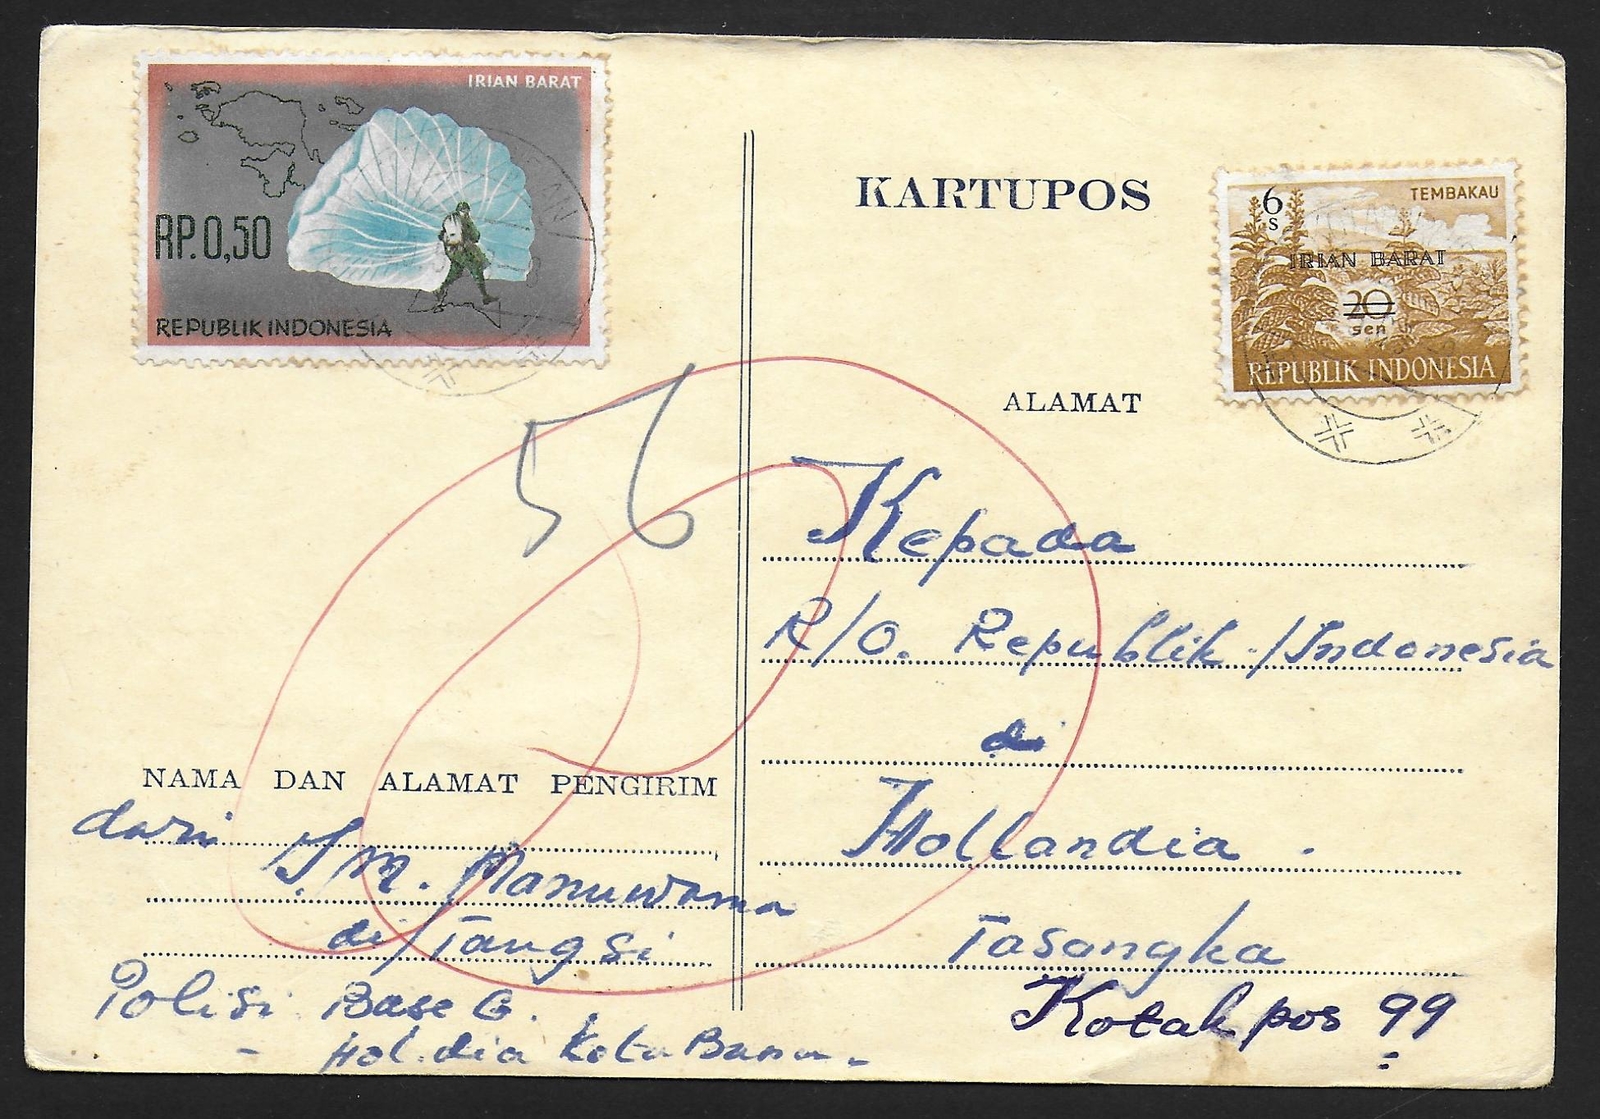 IRIAN BARAT
RP.0,50
REPUBLIK INDONESIA
KARTUPOS
6
s
TEMBAKAU
IRIAN BARAT
20
sen
REPUBLIK INDONESIA
56
ALAMAT
Kepada
R/O. Republik./Indonesia
di
Hollandia.
Tasangka
Kotak pos 99
NAMA DAN ALAMAT PENGIRIM
dari
M. Manuwama
di/Tangsi
Polisi Base G.
Hol.dia Kota Baru.